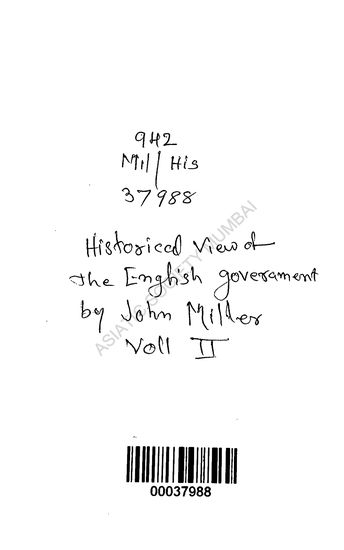 942
Mil/His
37988
Historical View of
the English goverament
by John Miller
Voll II
ASIATIC SOCIETY MUMBAI
00037988